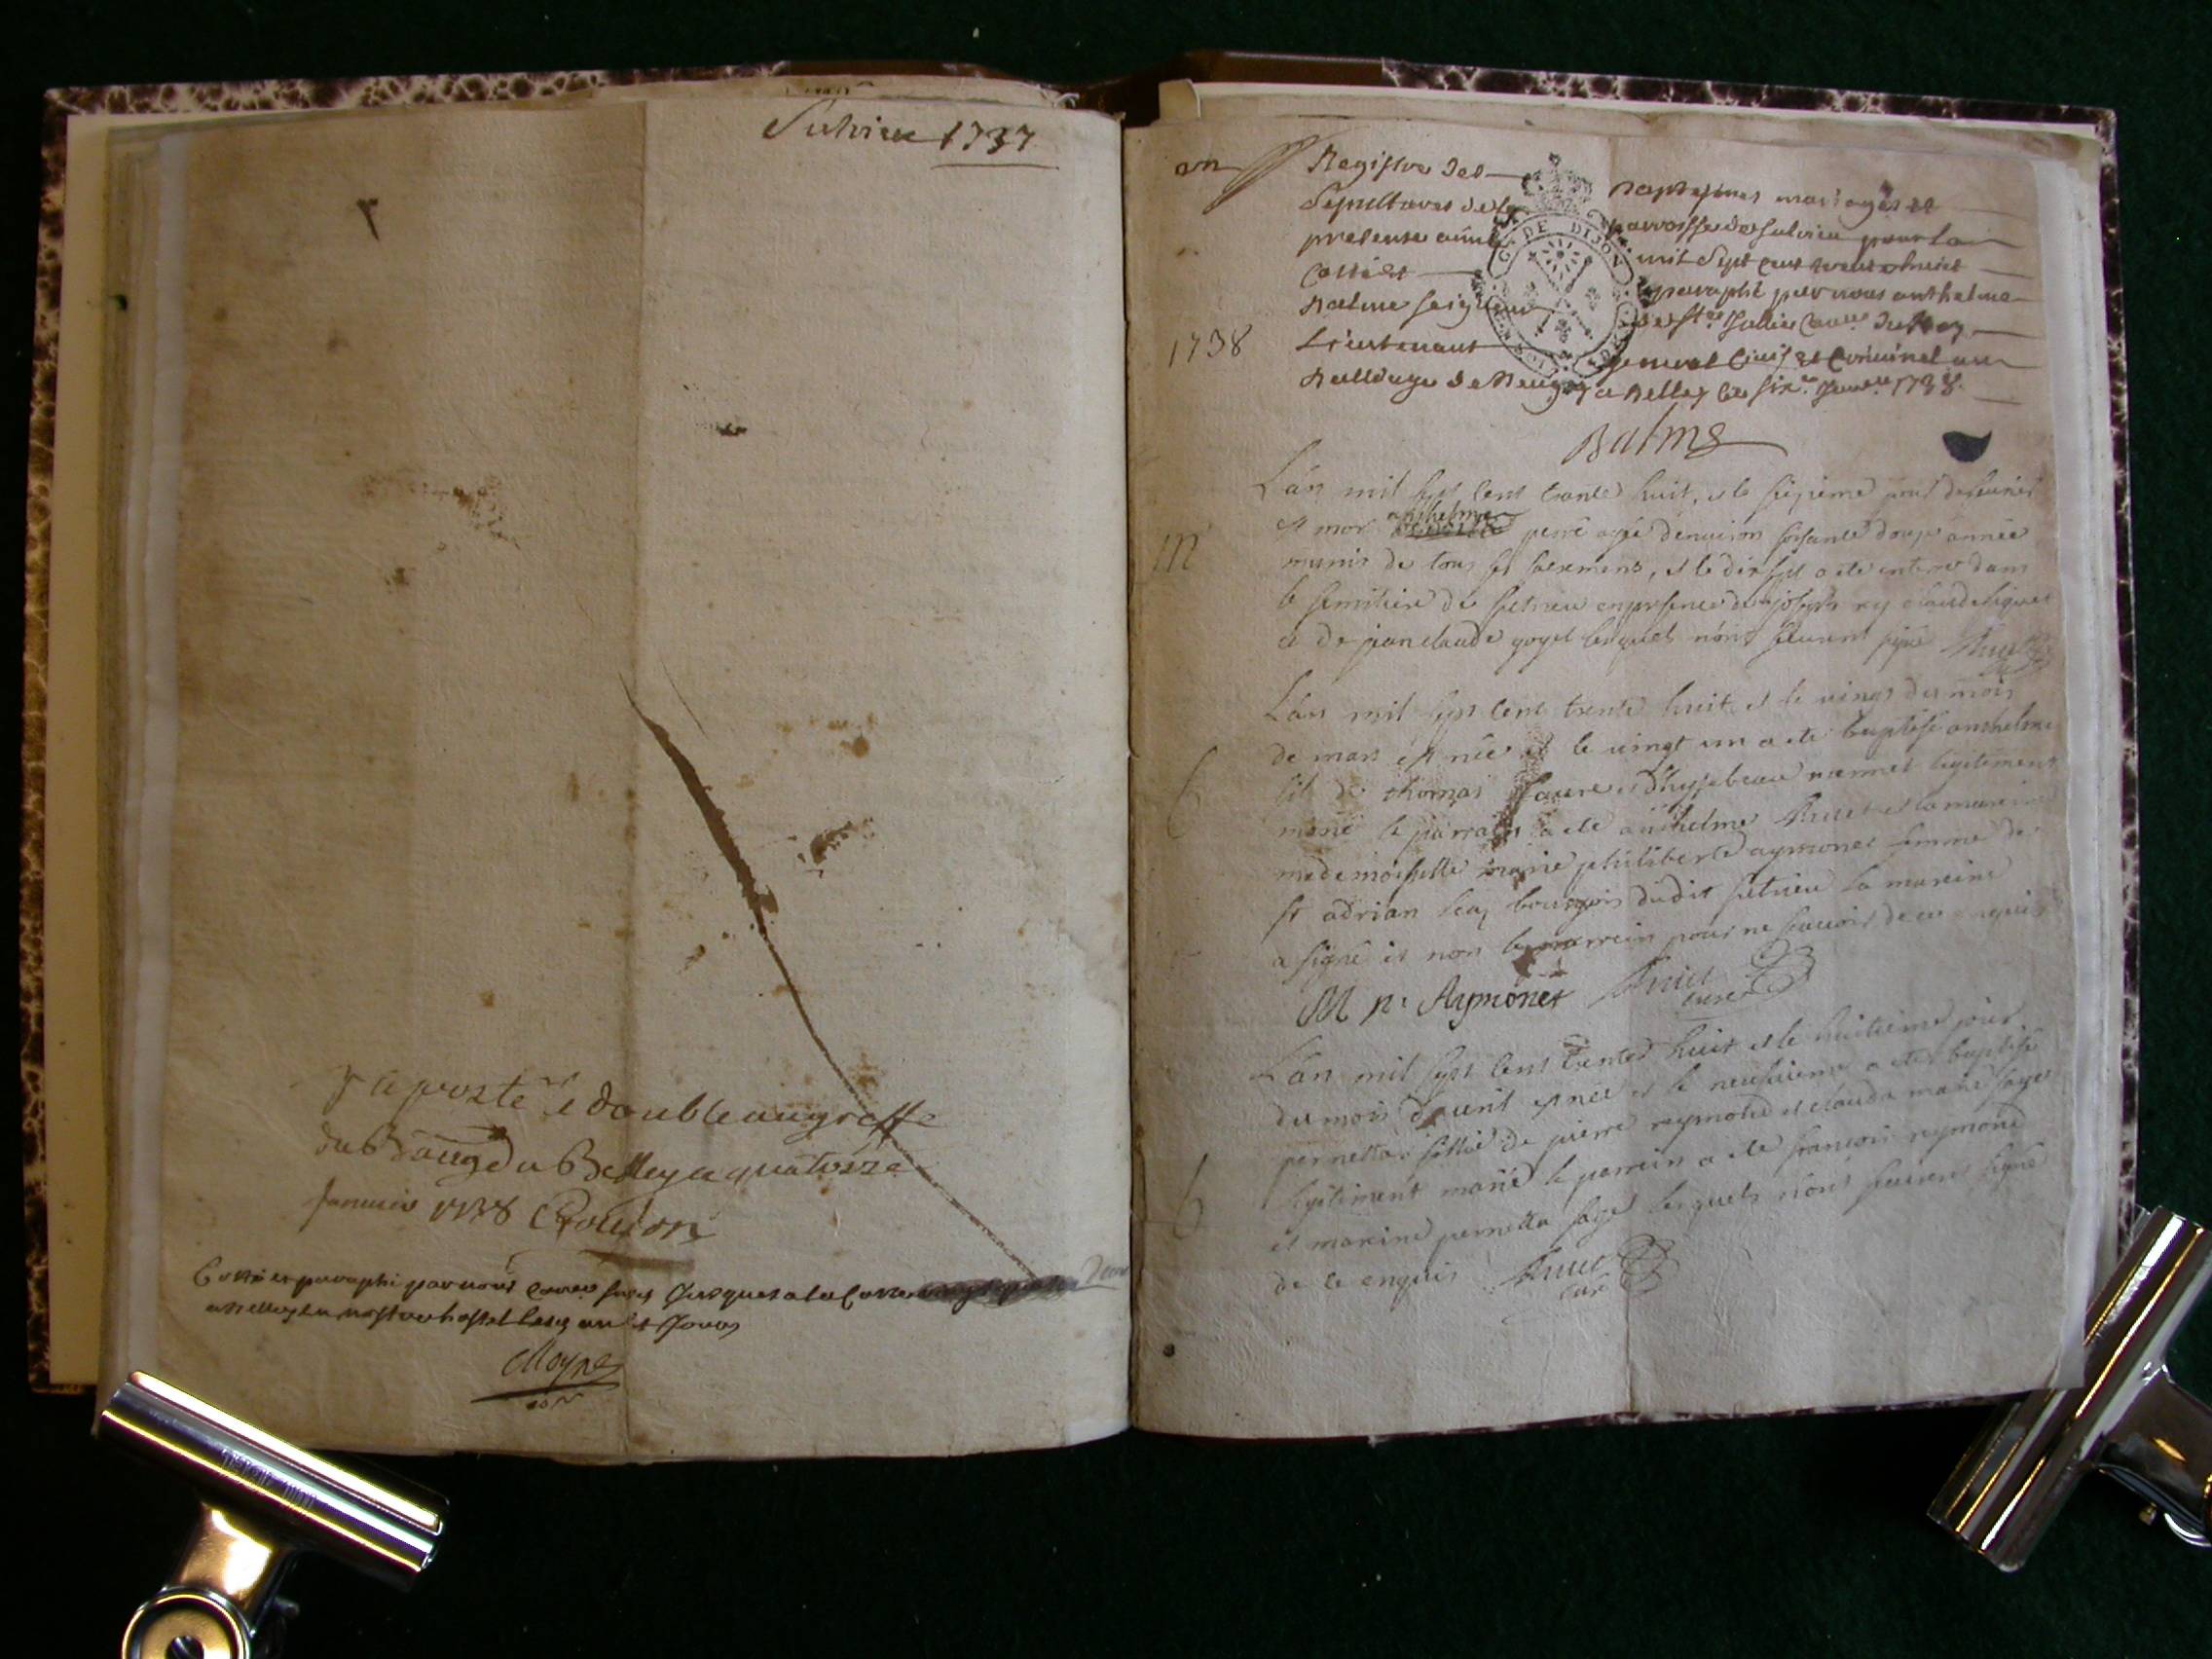 Sutrieu 1737
apporté le double au greffe
du Baage du Belley le quatorze
Janvier 1738
Cotté et paraphé par nous
Moyne
en
Registre des baptesmes mariages et
Sepultures de la parroisse de Sutrieu pour la
presente année mil sept cent trente huict
Cottée et paraphé par nous anthelme
Balme seigneur de Ste Jullie du Roy
1738
Lieutenant general Civil et Criminel au
Balliage de Beugey a Belley le six. Janv. 1738.
G. DE DIJON
Balme
L'an mil sept cent trante huit, et le
m
est mor anthelme perre agé denviron soisante douze année
munis de tous ses sacremens, et le dix sept a ete enterre dans
le semitiere de sutrieu en presence de joseph rey
et de jean claude goyet lesquels n'ont sceurent signé
L'an mil sept cent trente huit et le vingt du mois
de mars est née et le vingt un a ete baptisé anthelme
b
fils de thomas faure et d'hysabeau mermet legitement
marié le parrain a ete anthelme et la mareine
mademoiselle marie philiberte aymonet femme de
sr adrian bourgois dudit sutrieu la mareine
a signé et non le parrein pour ne scavoir de ce enquis
M p. Aymonet curé
L'an mil sept cent trente huit et le huitieme jour
du mois d'avril est née et le neufvieme a ete baptisé
pernetta fillie de pierre reymond et clauda marie
b
legitiment marié le parrein a ete francois reymond
et mareine pernetta lesquels n'ont sceurent signé
de ce enquis curé